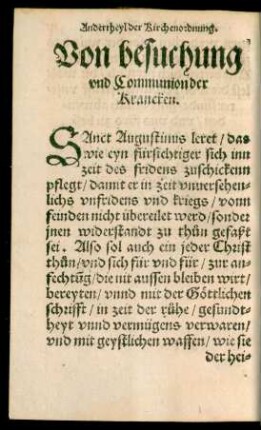 Anderrheyl der Kirchenordnung.
Von besuchung
vnd Communion der
Krancken.
SAnct Augustinus leret / das
wie eyn fürsichtiger sich inn
zeit des fridens zuschickenn
pflegt / damit er in zeit vnuersehen-
lichs vnfridens vnd kriegs / vonn
feinden nicht übereilet werd / sonder
jnen widerstandt zu thůn gefaßt
sei. Also sol auch ein jeder Christ
thůn / vnd sich für vnd für / zur an-
fechtũg / die nit aussen bleiben wirt /
bereyten / vnnd mit der Göttlichen
schrifft / in zeit der růhe / gesundt-
heyt vnnd vermügens verwaren /
vnd mit geystlichen waffen / wie sie
der hei-